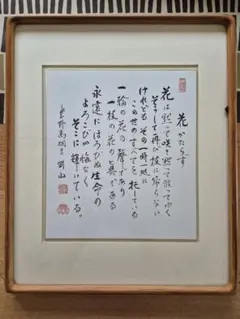 花かたらず
花は黙って咲き黙って散ってゆく
そうして再び枝に帰らない
けれども その一時一処に
この世のすべてを托している
一輪の花の聲であり
一枝の花の真である
永遠にほろびぬ生命の
よろこびが悔なく
そこに輝いている。